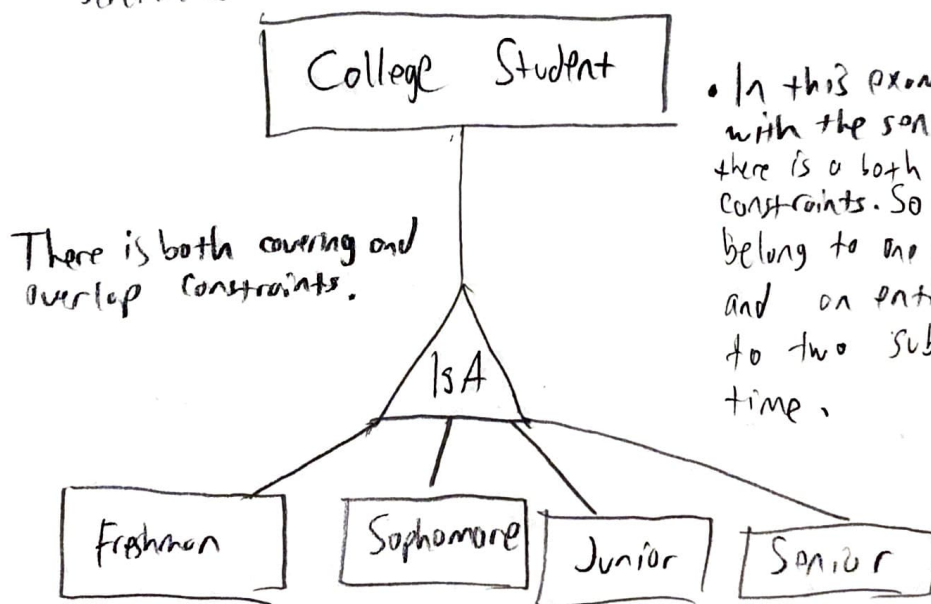 College Student
• In this
with the
there is a both
constraints. So
belong to one
and an
to two
time.
There is both covering and
overlap constraints.
IsA
Freshman
Sophomore
Junior
Senior